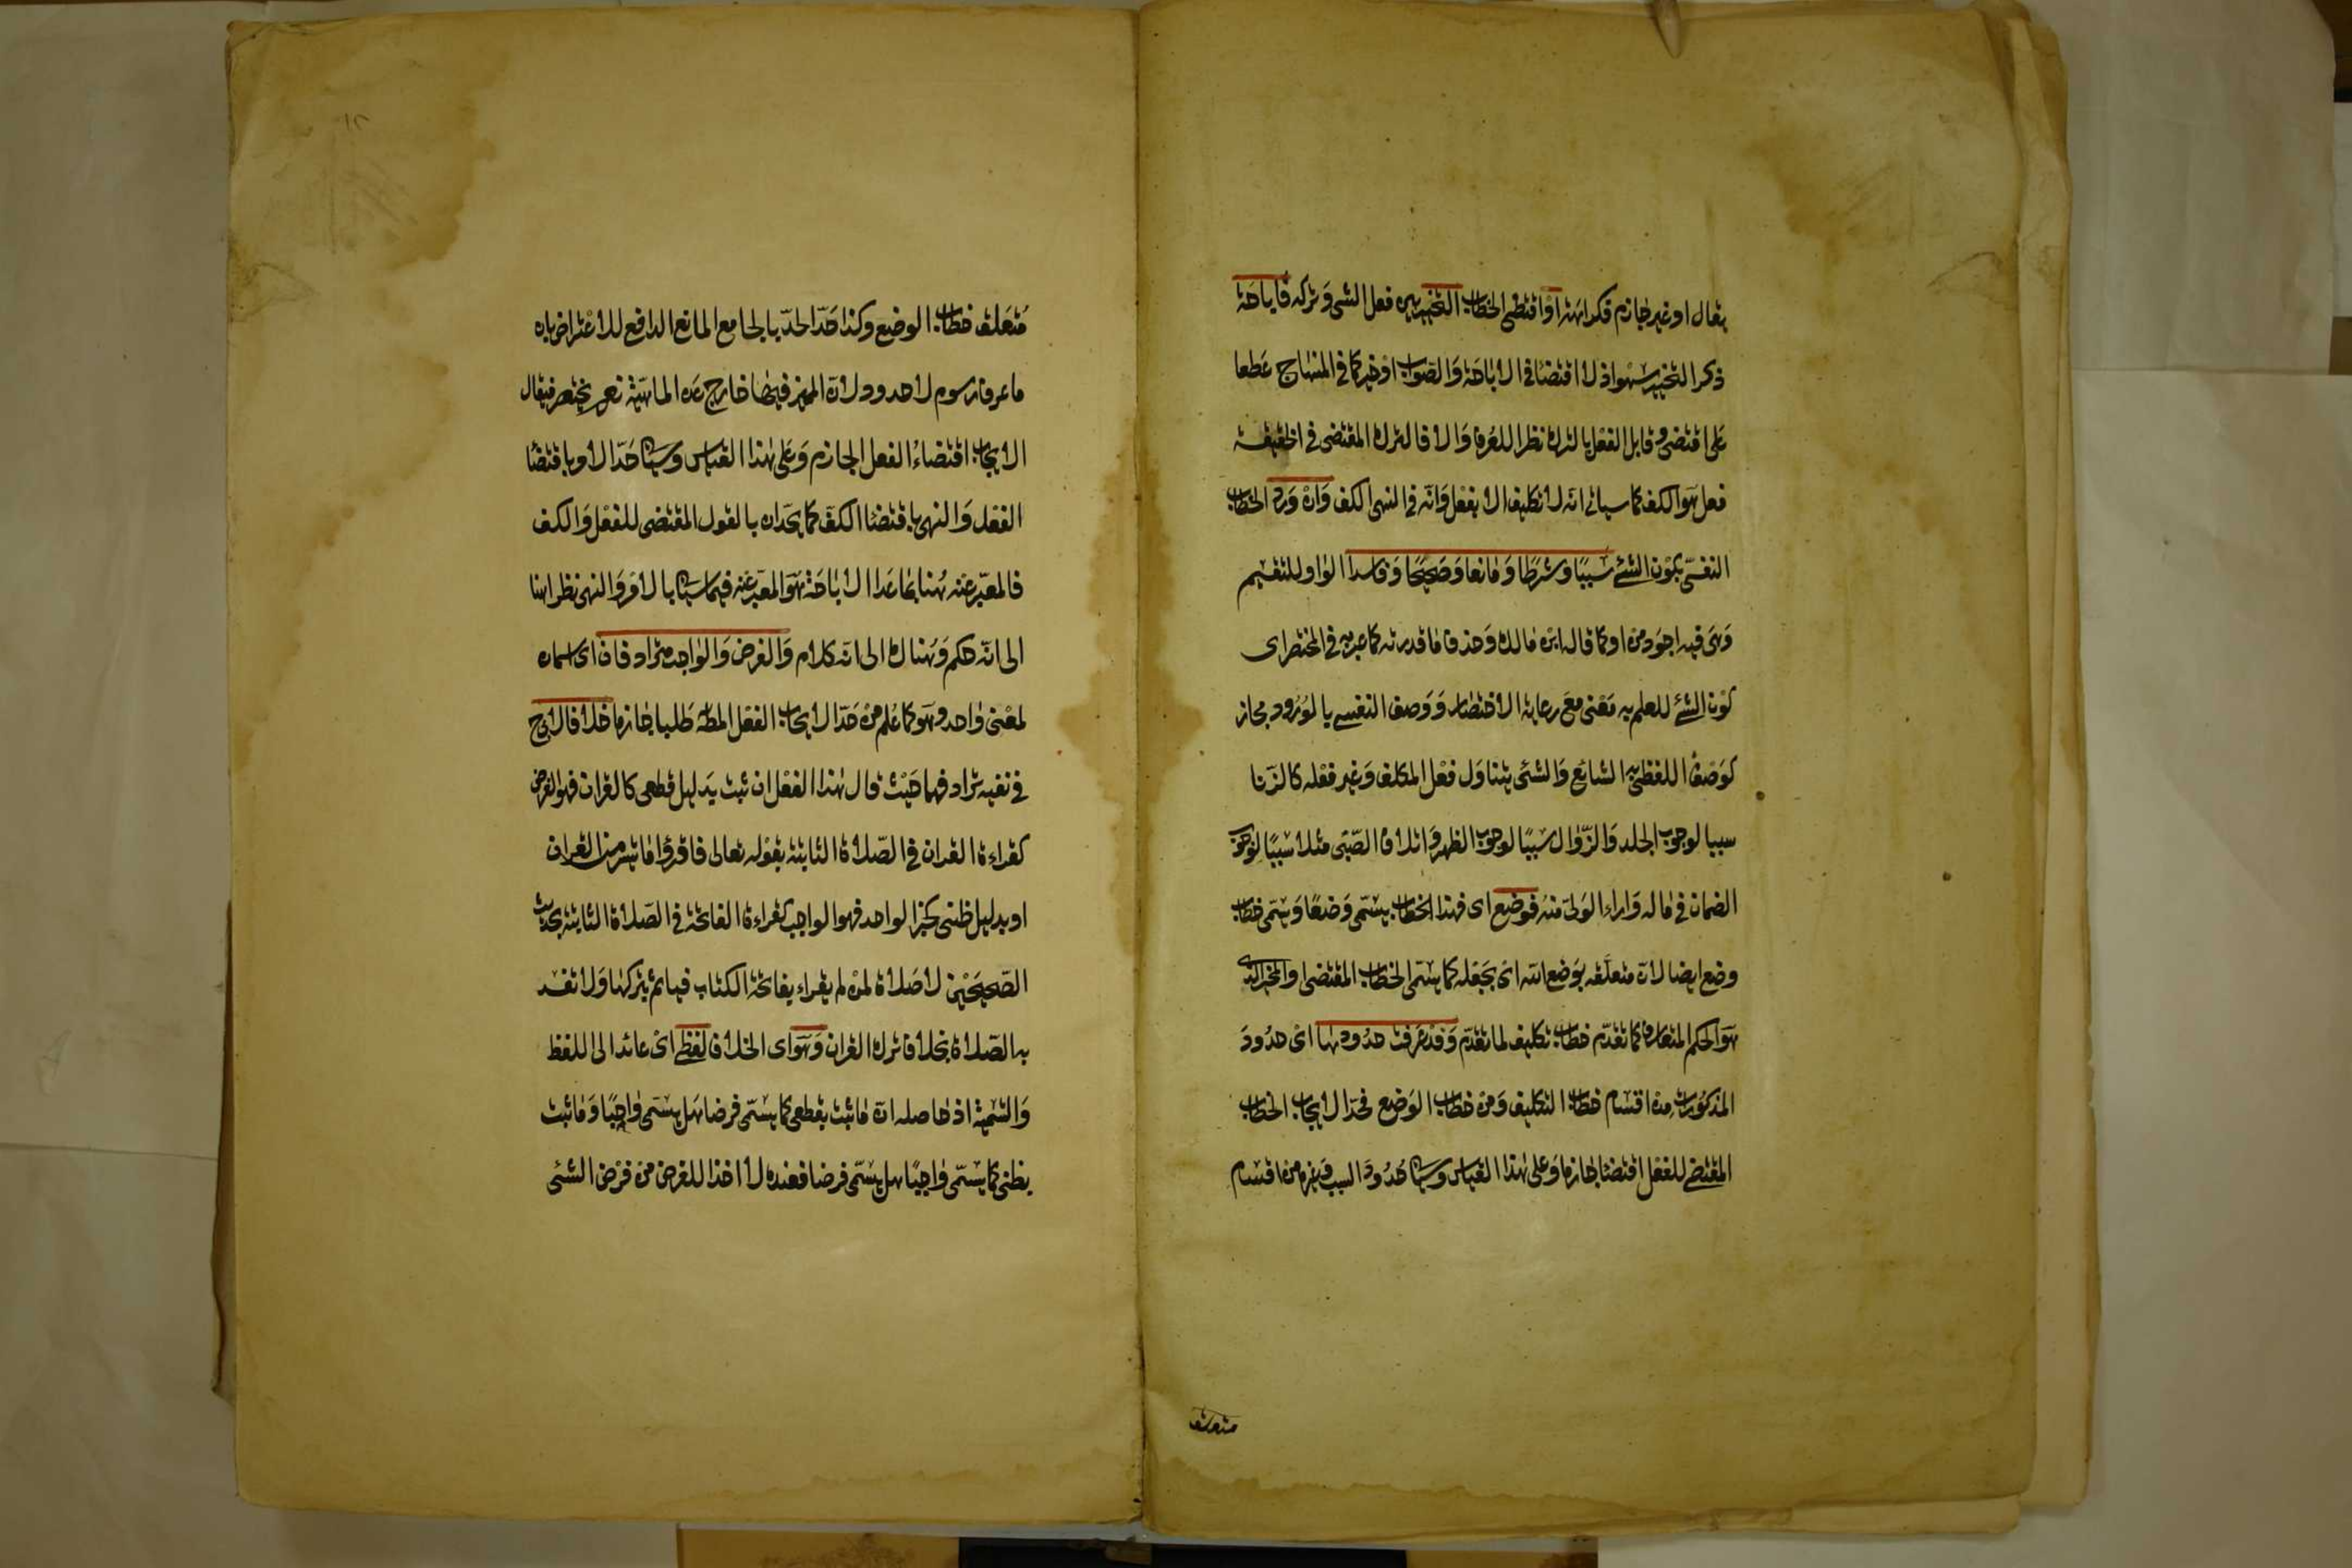 يقال او غير جازم فكراهة او اقتضى الخطاب التخيير بين فعل الشئ وتركه فاباحة
ذكر التخيير سهو اذ لا اقتضا فى الاباحة والصواب او خير كما فى المنهاج عطفا
على اقتضى وقابل الفعل بالترك نظرا للعرف والا فالترك المقتضى فى الحقيقة
فعل هو الكف كما سياتى انه لا تكليف الا بفعل وانه فى النهى الكف وان ورد الخطاب
النفسى بكون الشئ سببا وشرطا ومانعا وصحيحا وفاسدا الواو للتقسيم
وهى فيه اجود من او كما قال ابن مالك وحذف ما قدرته كما عبر به فى المختصر اى
كون الشئ للعلم به معنى مع رعاية الاختصار ووصف النفسى بالورود مجاز
كوصف اللفظى به الشائع والشئ يتناول فعل المكلف وغير فعله كالزنا
سببا لوجوب الجلد والزوال سببا لوجوب الظهر واتلاف الصبى مثلا سببا لوجوب
الضمان فى ماله واداء الولى منه فوضع اى فهذا الخطاب يسمى وضعا ويسمى خطاب
وضع ايضا لان متعلقه بوضع الله اى بجعله كما يسمى الخطاب المقتضى او المخير الذى
هو الحكم المتعارف كما تقدم خطاب تكليف لما تقدم وقد عرفت حدودها اى حدود
المذكورات من اقسام خطاب التكليف ومن خطاب الوضع فحد الايجاب الخطاب
المقتضى للفعل اقتضا جازما وعلى هذا القياس وسياتى حدود السبب وغيره من اقسام
متعلق
١٢
متعلق خطاب الوضع وكذا حد الحد بالجامع المانع الدافع للاعتراض بان
ما عرف رسوم لا حدود لان المميز فيها خارج عن الماهية نعم يختصر فيقال
الايجاب اقتضاء الفعل الجازم وعلى هذا القياس وسياتى حد الامر باقتضا
الفعل والنهى باقتضا الكف كما يحدان بالقول المقتضى للفعل والكف
فالمعبر عنه هنا بما عدا الاباحة هو المعبر عنه فيما سياتى بالامر والنهى نظرا هنا
الى انه حكم وهناك الى انه كلام والفرض والواجب مترادفان اى اسمان
لمعنى واحد وهو كما علم من حد الايجاب الفعل المط طلبا جازما خلافا لابى ح
فى نفيه ترادفهما حيث قال هذا الفعل ان ثبت بدليل قطعى كالقران فهو الفرض
كقراءة القران فى الصلاة الثابتة بقوله تعالى فاقرؤا ما تيسر من القران
او بدليل ظنى كخبر الواحد فهو الواجب كقراءة الفاتحة فى الصلاة الثابتة بحديث
الصحيحين لا صلاة لمن لم يقراء بفاتحة الكتاب فياثم بتركها ولا تفسد
به الصلاة بخلاف ترك القران وهو اى الخلاف لفظى اى عائد الى اللفظ
والتسمية اذ حاصله ان ما ثبت بقطعى كما يسمى فرضا هل يسمى واجبا وما ثبت
بظنى كما يسمى واجبا هل يسمى فرضا فعنده لا اخذا للفرض من فرض الشئ